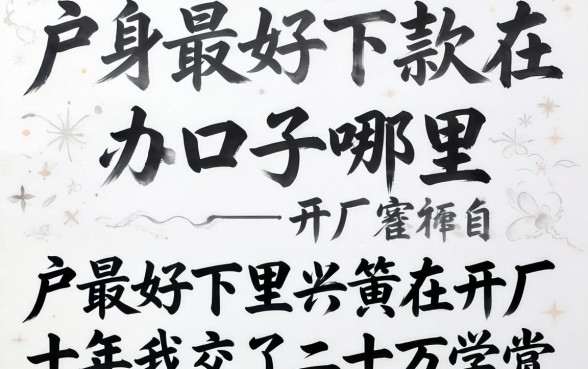 户身最好下款在
办口子哪里
——开厂
户最好下里兴簧在开厂
十年我交了二十万学赏